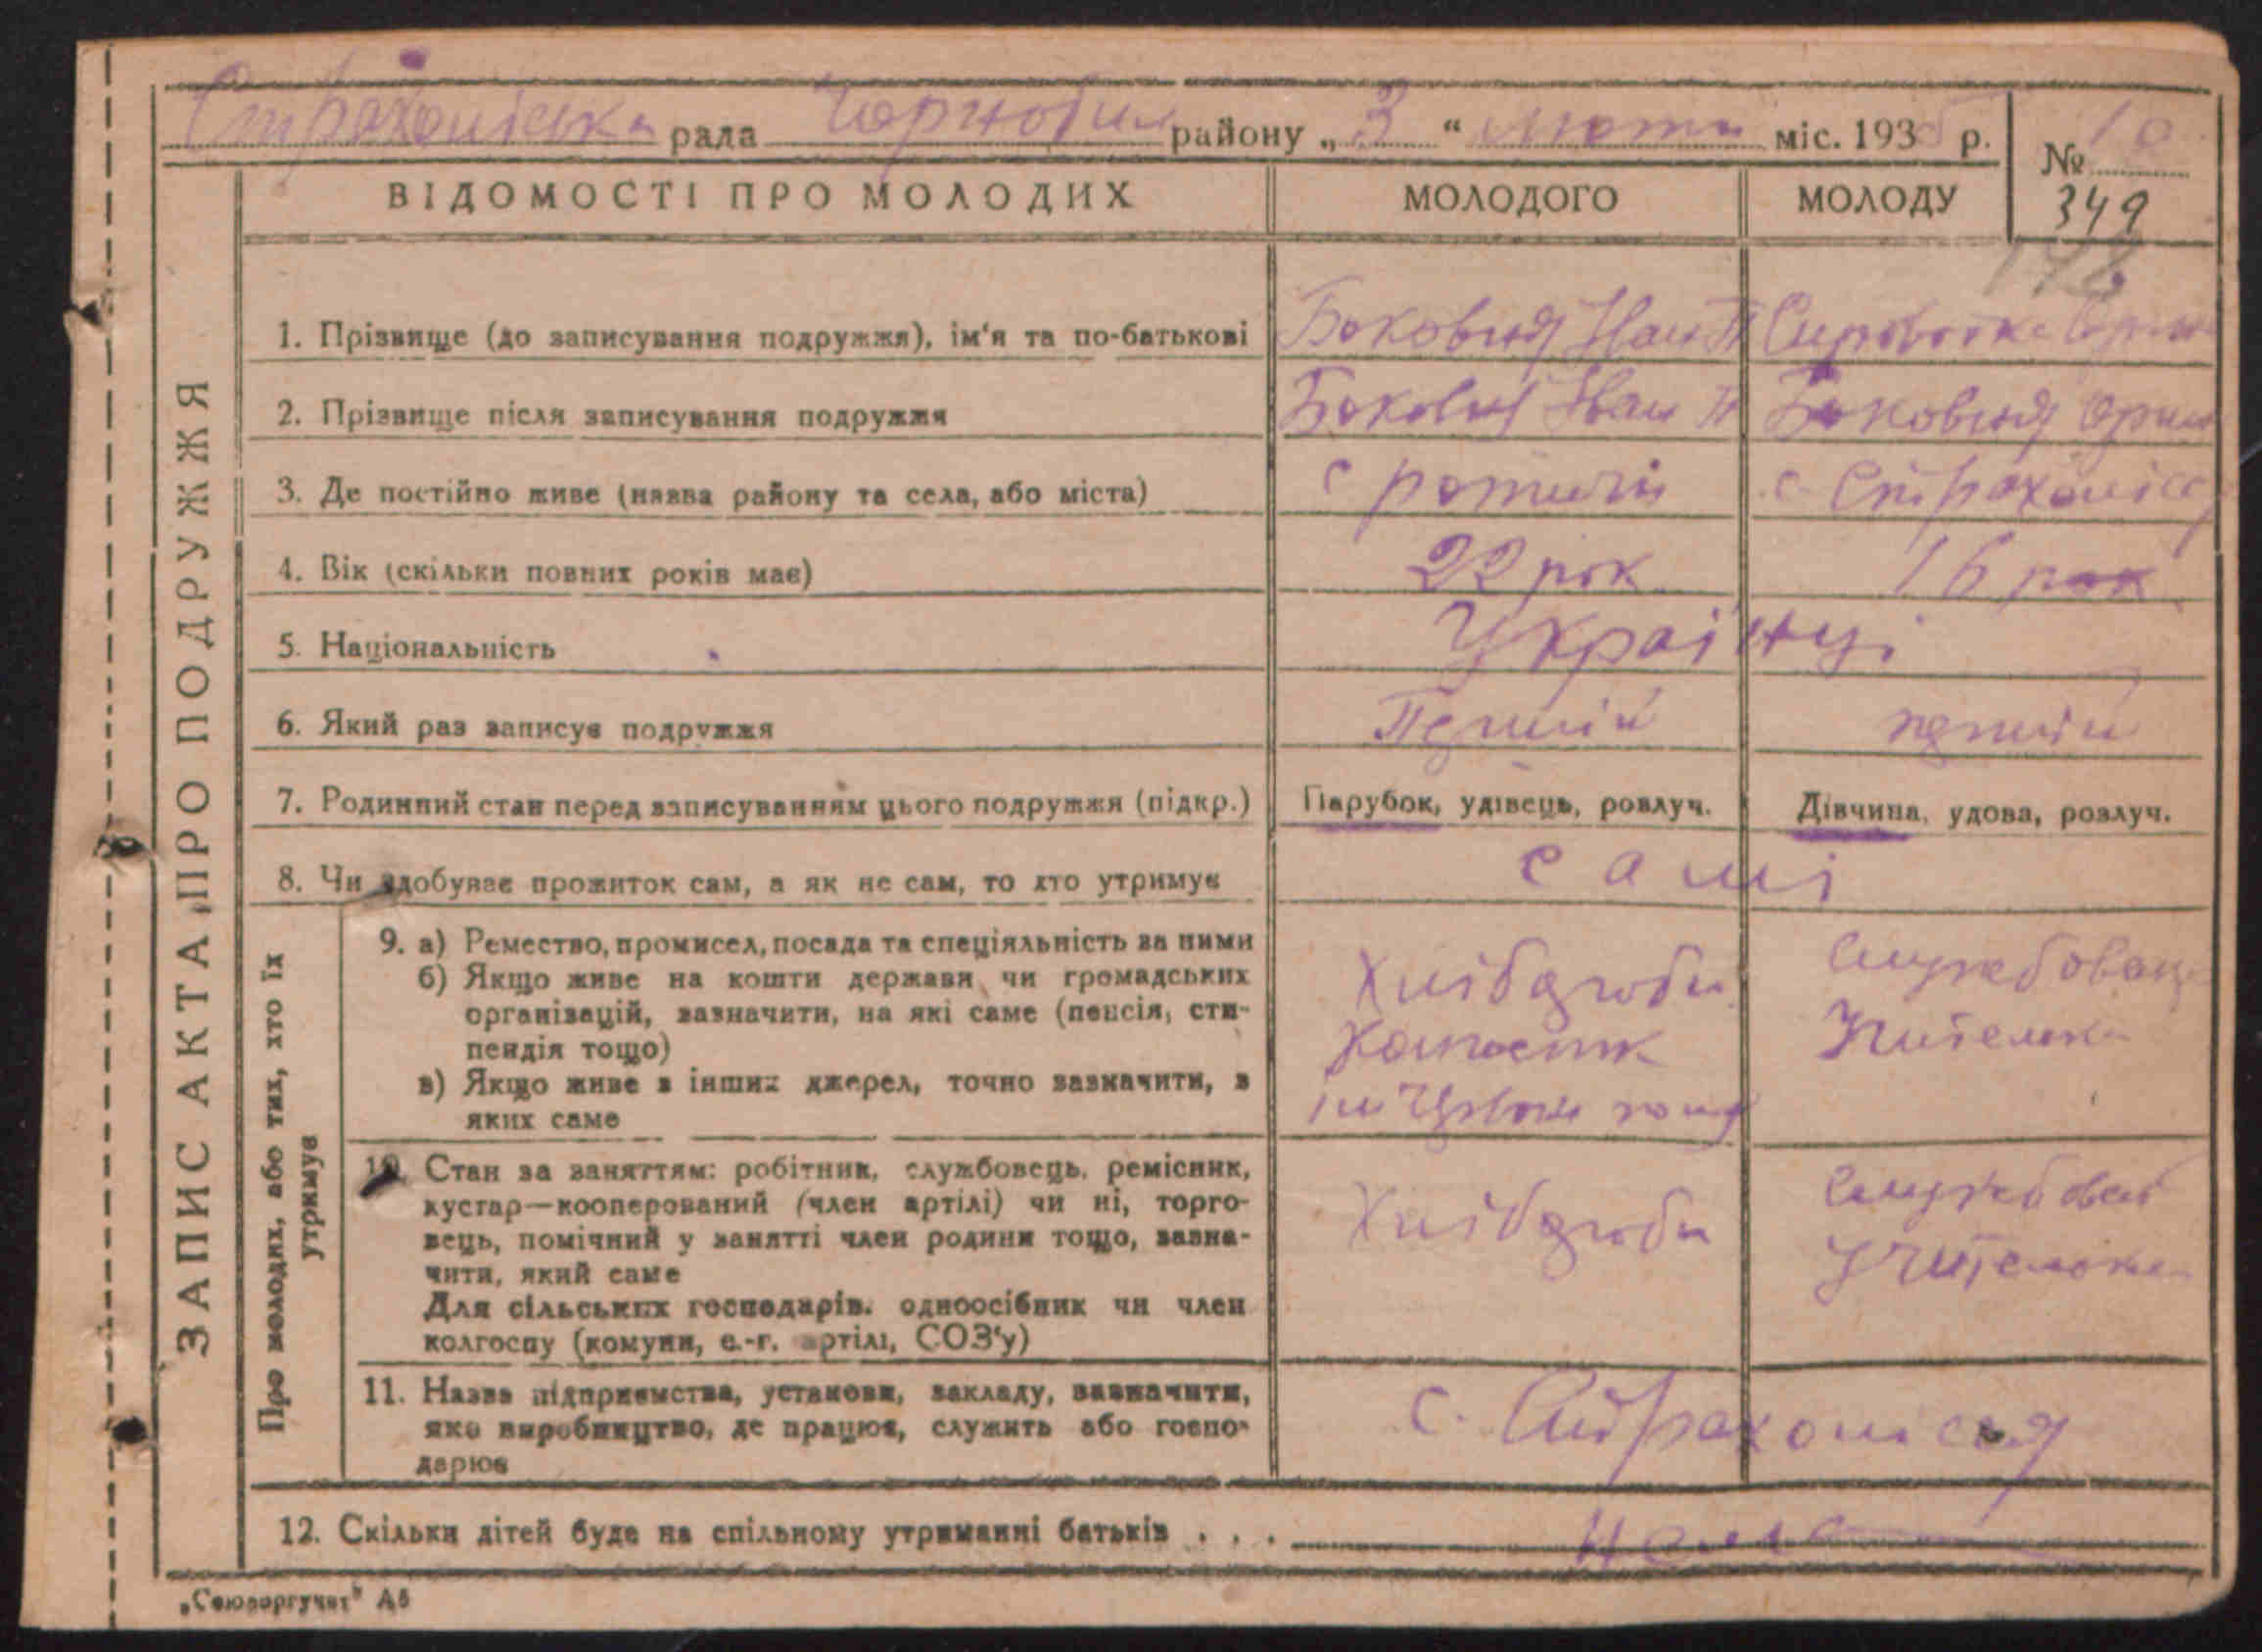 Страхоліська рада Чорнобил району „ 3 “ люти міс. 1935 р.
№ 10
349
178
ВІДОМОСТІ ПРО МОЛОДИХ МОЛОДОГО МОЛОДУ
ЗАПИС АКТА ПРО ПОДРУЖЖЯ
1. Прізвище (до записування подружжя), ім'я та по-батькові Боковня Іван П Сироватка Орин
2. Прізвище після записування подружжя Боковня Іван П Боковня Орин
3. Де постійно живе (назва району та села, або міста) с ротичи с. Страхолісся
4. Вік (скільки повних років має) 22 рок 16 рок
5. Національність Українці
6. Який раз записує подружжя Перший перший
7. Родинний стан перед записуванням цього подружжя (підкр.) Парубок, удівець, розлуч. Дівчина, удова, розлуч.
8. Чи здобуває прожиток сам, а як не сам, то хто утримує самі
Про молодих, або тих, хто їх утримує
9. а) Ремество, промисел, посада та спеціяльність за ними
б) Якщо живе на кошти держави чи громадських
організацій, зазначити, на які саме (пенсія, сти-
пендія тощо)
в) Якщо живе з інших джерел, точно зазначити, з
яких саме
Хлібороби
Службовец
Учителька
10. Стан за заняттям: робітник, службовець, ремісник,
кустар—кооперований (член артілі) чи ні, торго-
вець, помічний у занятті член родини тощо, зазна-
чити, який саме
Для сільських господарів: одноосібник чи член
колгоспу (комуни, с.-г. артілі, СОЗ'у)
Хлібороби
Службовец
Учителька
11. Назва підприємства, установи, закладу, зазначити,
яке виробництво, де працює, служить або госпо-
дарює
с. Страхолісся
12. Скільки дітей буде на спільному утриманні батьків . . . нема
„Союзоргучет" А5